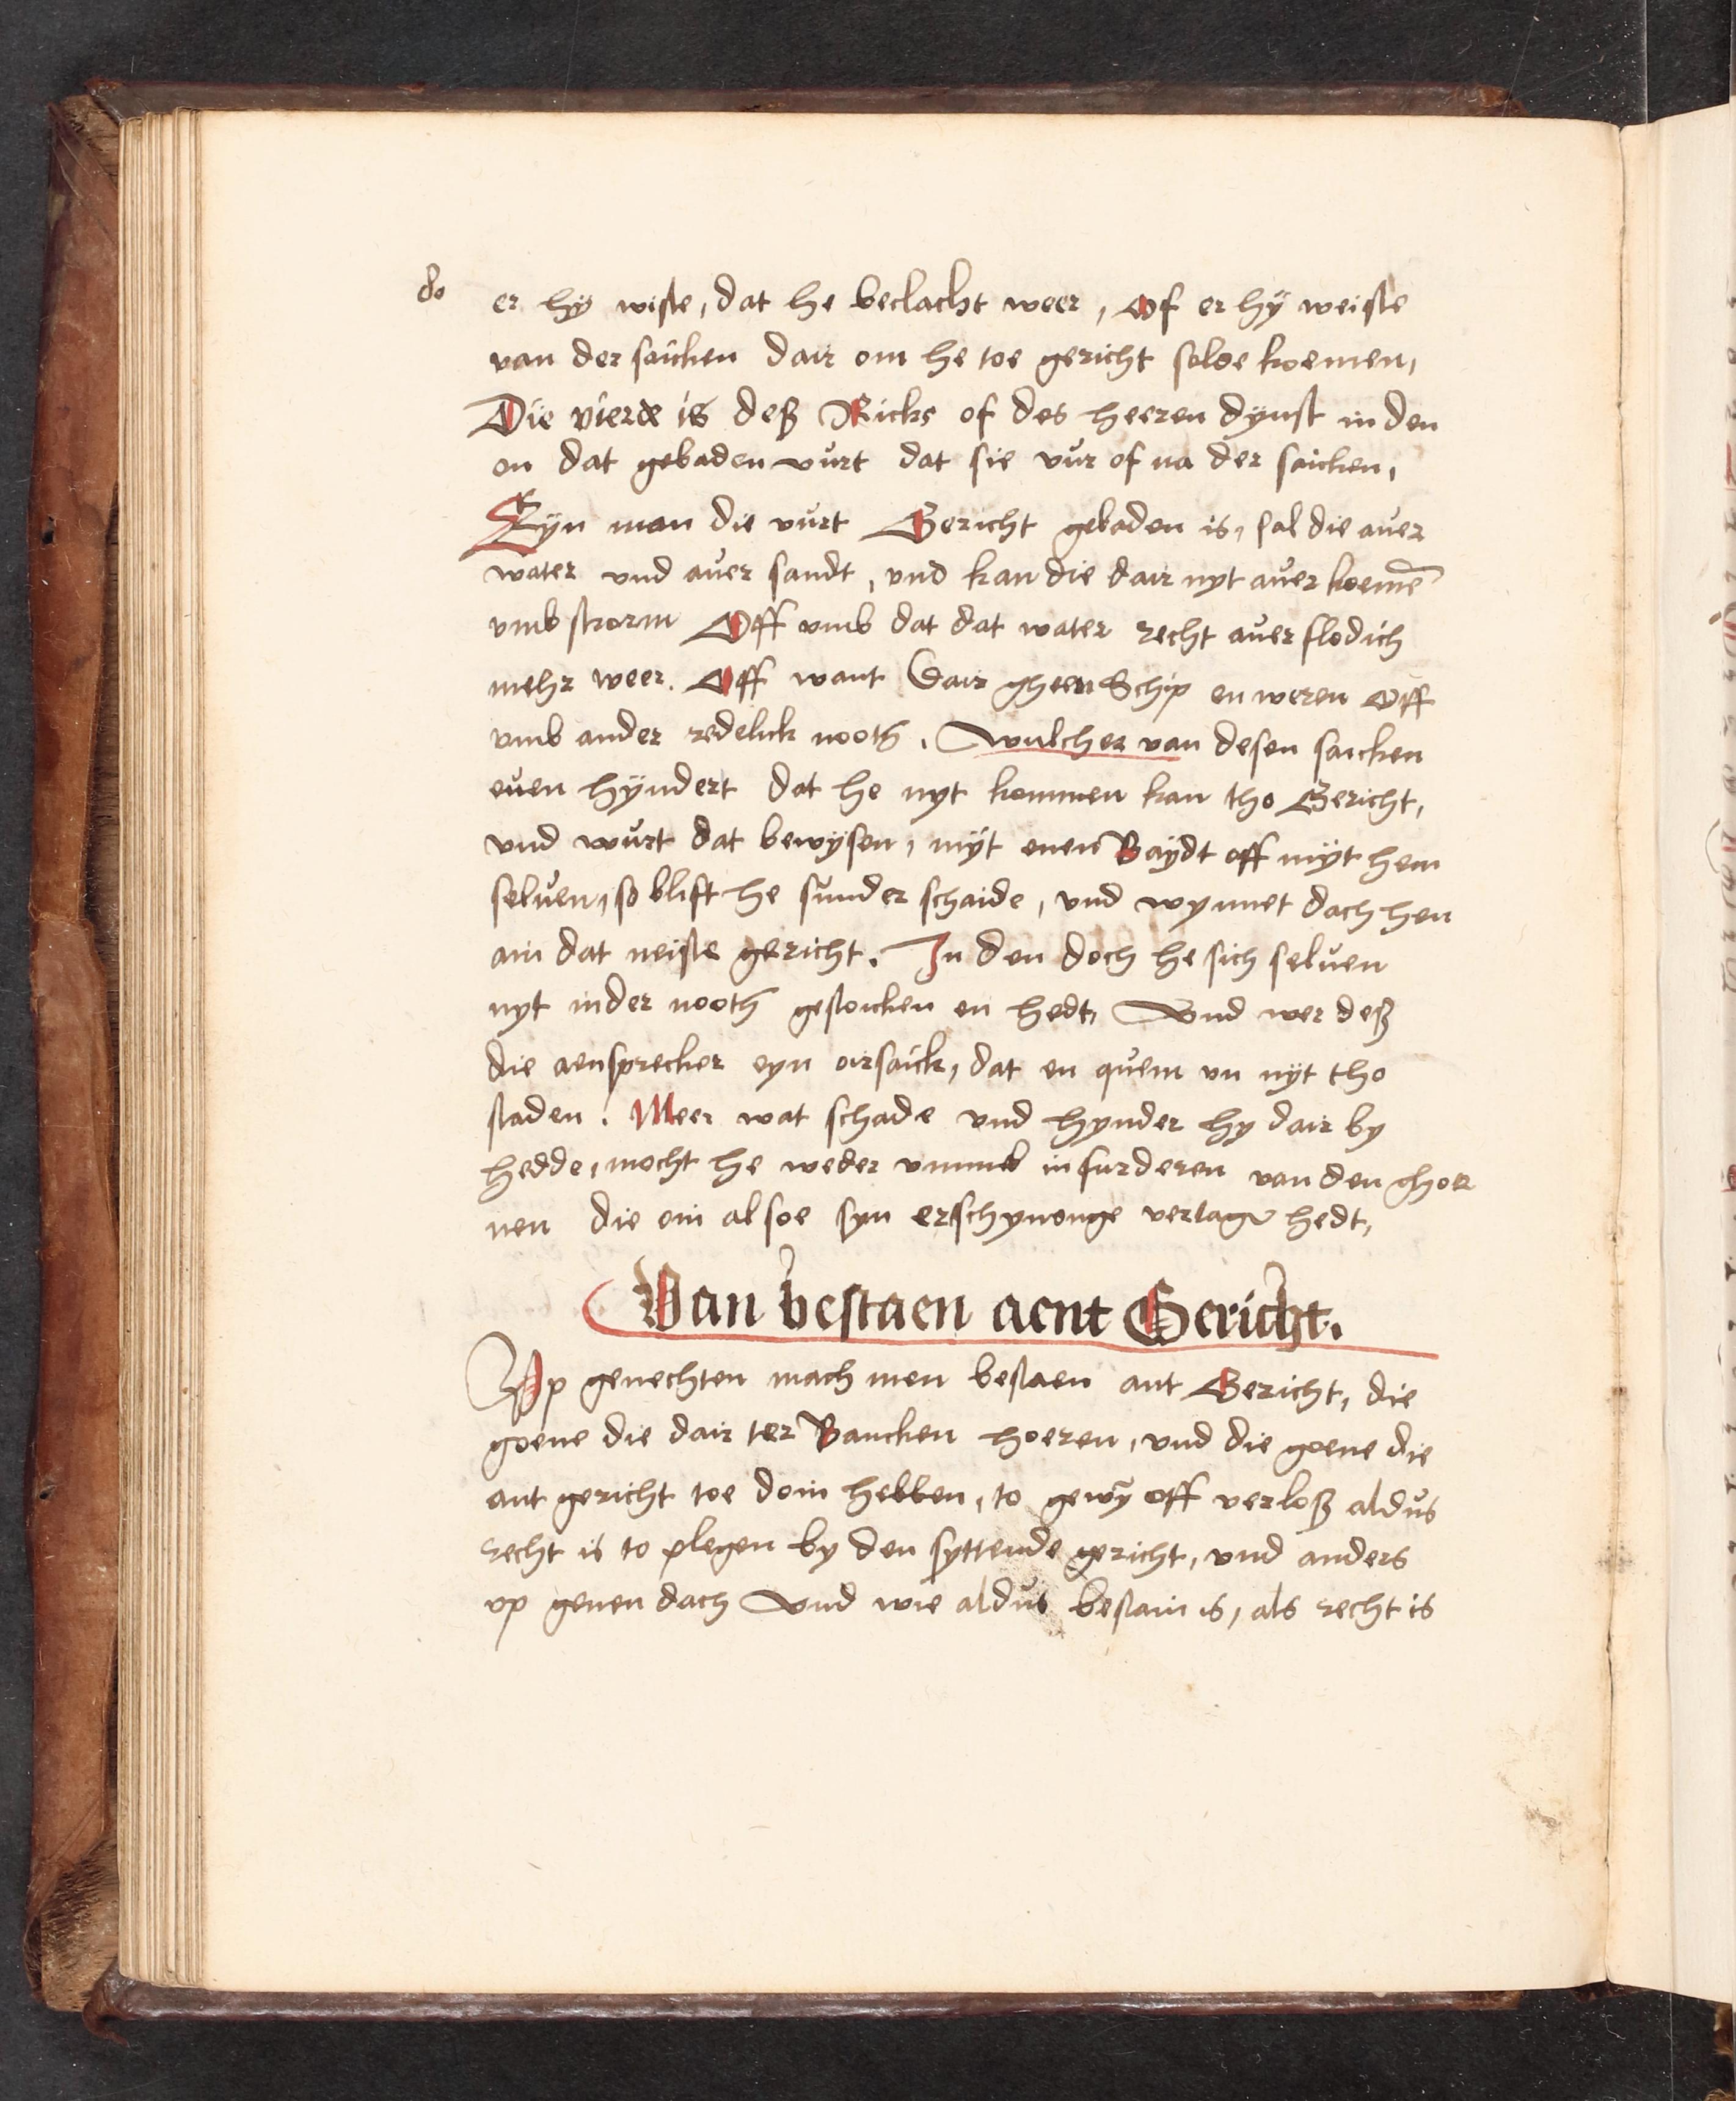 do er hÿ wiste, dat he beclacht weer, Of er hÿ weiste
van der saicken dair om he toe gericht solde koemen,
Die vierde is deß Ricks of des heeren dÿnst in den
on dat gebaden vurt dat sie vur of na der saicken,
Eyn man die vurt Gericht gebaden is, sal die aver
water und aver sandt, und kan die dair nyt aver koemē
vmb storm Off vmb dat dat water recht aver flodich
mehr weer. Off want Dair gheen Schip en weren Off
vmb ander redelick nooth. Wulcher van desen saicken
even hÿndert dat he nyt kommen kan tho Gericht,
vnd wurt dat bewÿsen, mÿt enen Baÿdt off mÿt hem
selven, so blift he sunder schaide, vnd wynnet dach hen
ain dat neiste gericht. In den doch he sich selven
nyt in der nooth gestoicken en hedt, Vnd wer deß
die aensprecker eyn oirsaick, dat en quem vn nÿt tho
staden. Meer wat schade vnd hynder hy dair by
hedde, mocht he weder in furderen van den ghoe
nen die em alsoe syn erschynonge hedt,
Van bestaen aent Gericht.
Op genechten mach men bestaen ant Gericht, die
goene die dair ter Bancken hoeren, vnd die goene die
ant gericht toe doin hebben, to gewȳ off verloß aldus
recht is to plegen by den syttende gericht, vnd anders
vp genen dach Vnd wie aldus bestain is, als recht is